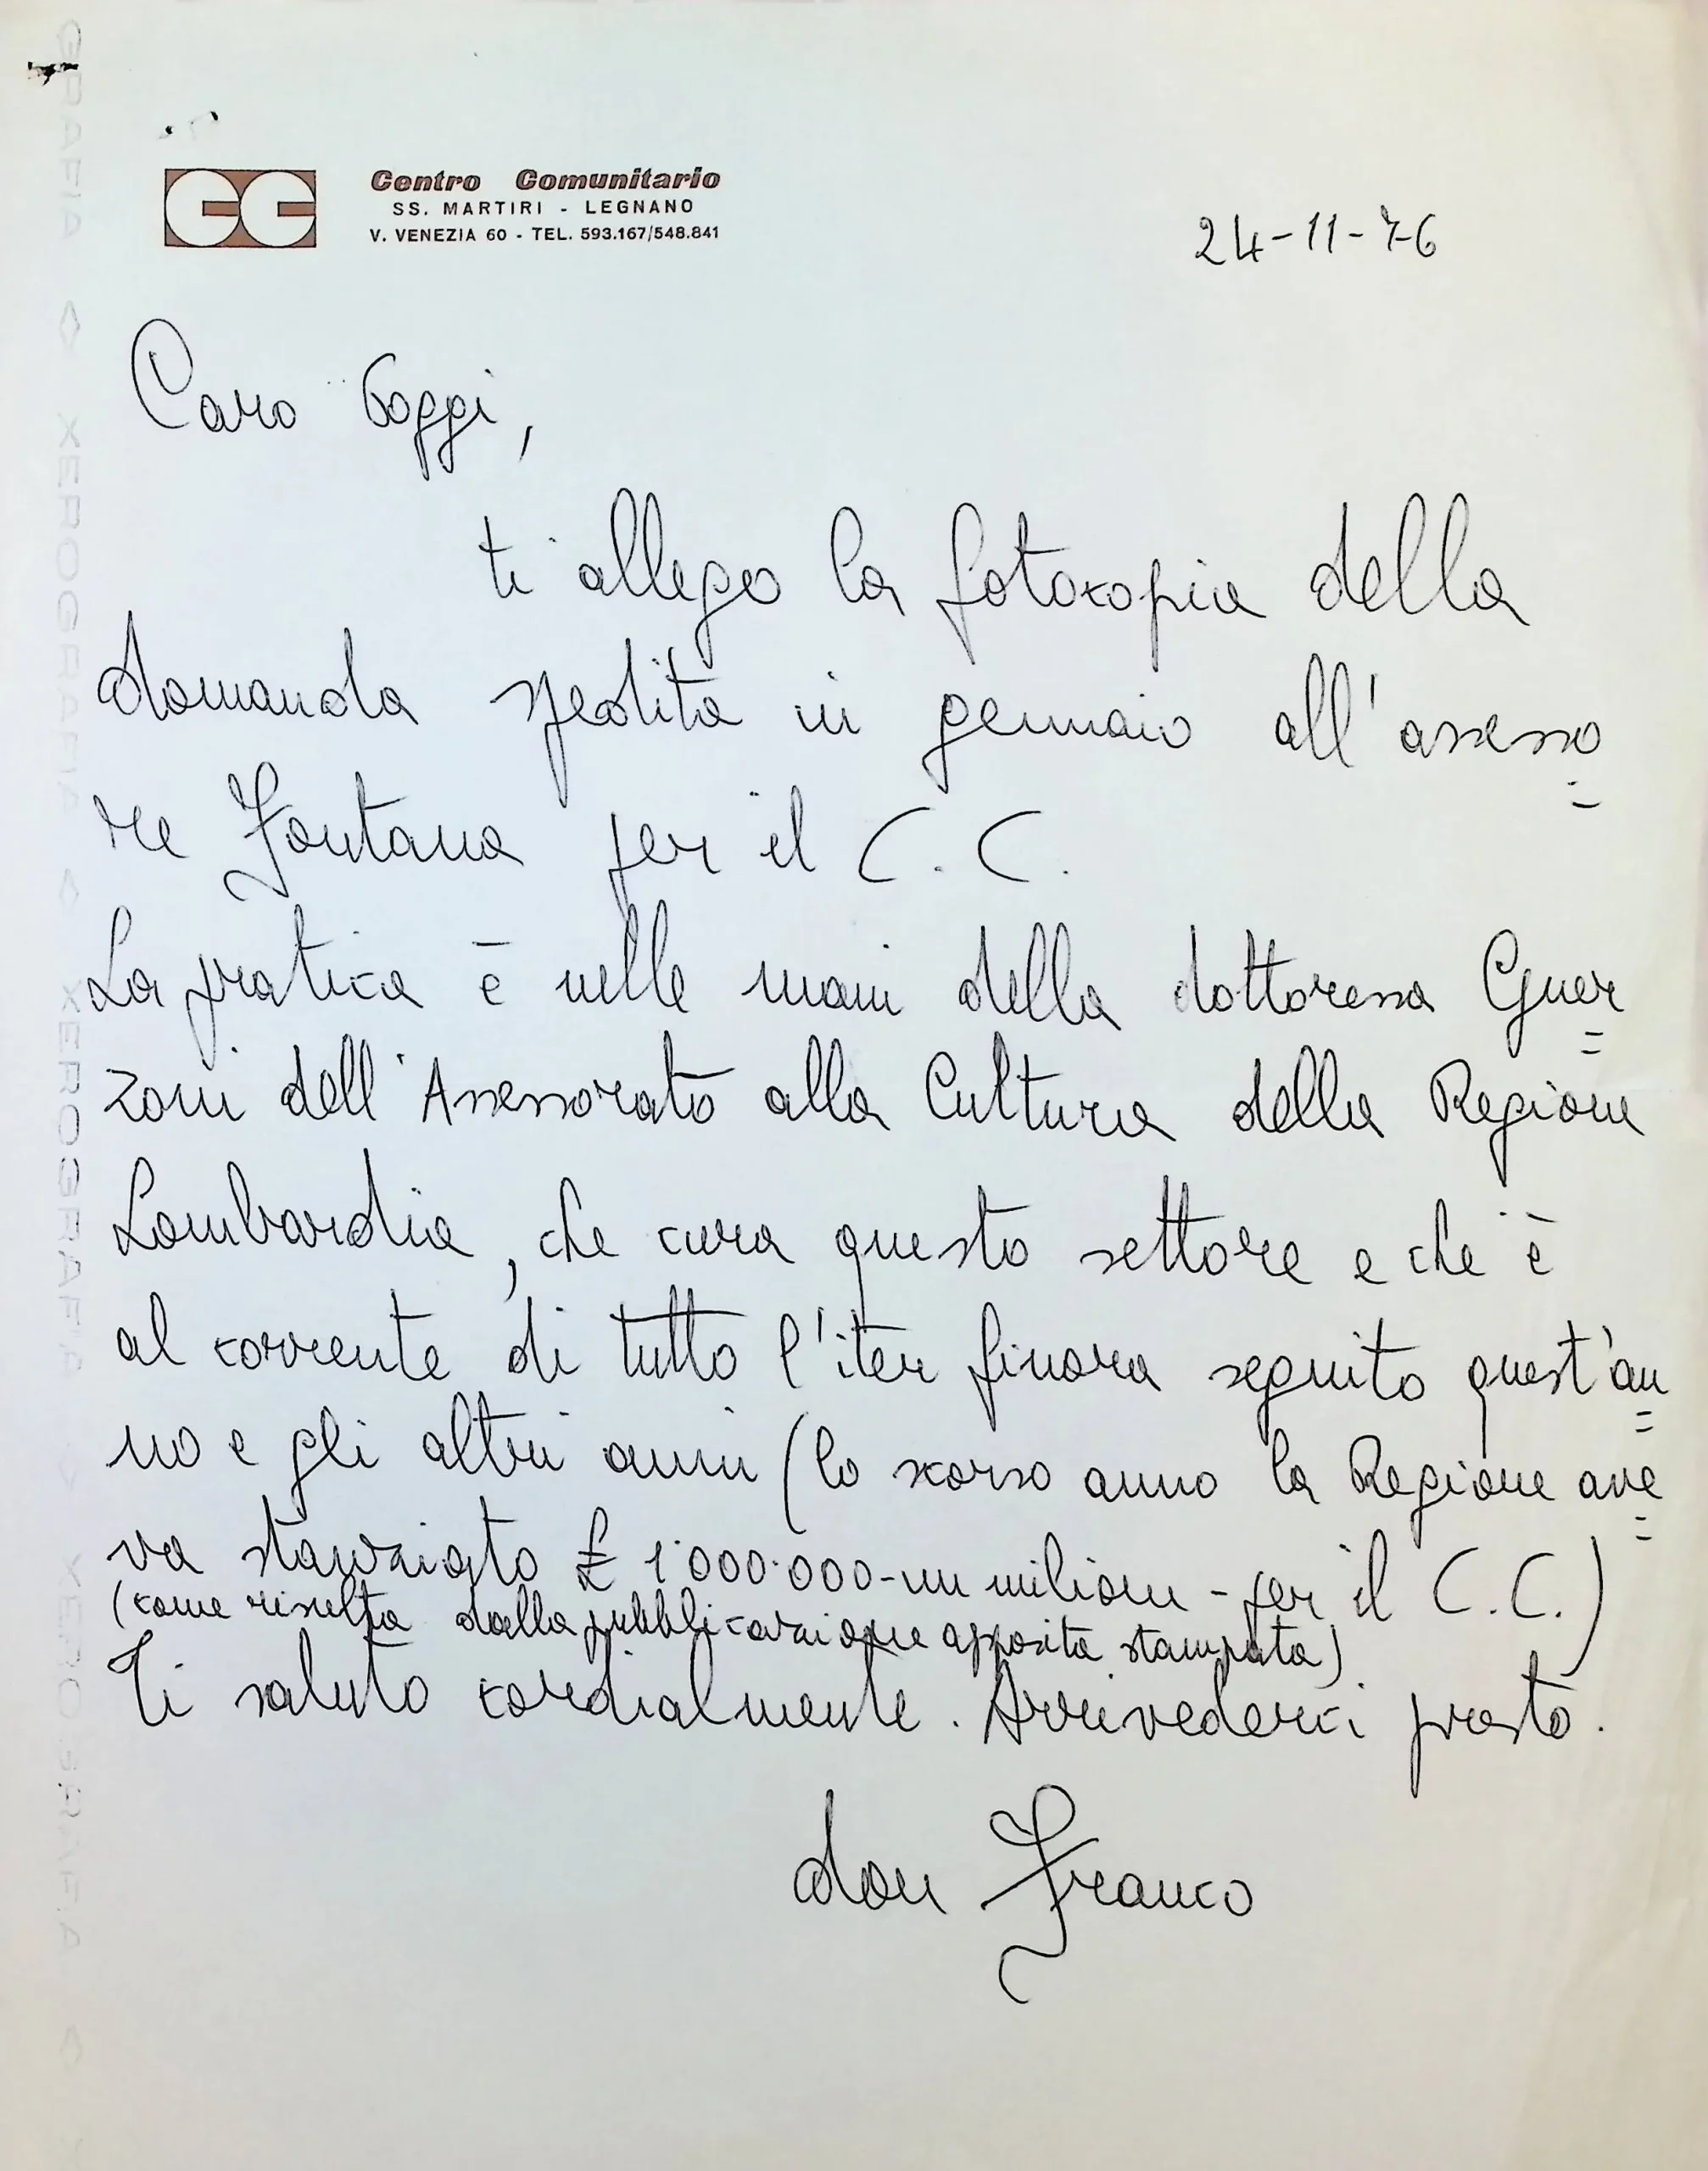 Centro Comunitario
SS. MARTIRI - LEGNANO
V. VENEZIA 60 - TEL. 593.167/548.841
24-11-76
Caro Poggi,
ti allego la fotocopia della
domanda spedita in gennaio all'assesso
=
re Fontana per il C.C.
La pratica è nelle mani della dottoressa Guer
=
zoni dell'Assessorato alla Cultura della Regione
Lombardia, che cura questo settore e che è
al corrente di tutto l'iter finora seguito quest'an
=
no e gli altri anni (lo scorso anno la Regione ave
=
va stanziato £ 1.000.000 - un milione - per il C.C.)
(come risulta dalla pubblicazione apposita stampata)
Ti saluto cordialmente. Arrivederci presto.
don Franco
XEROGRAFIA